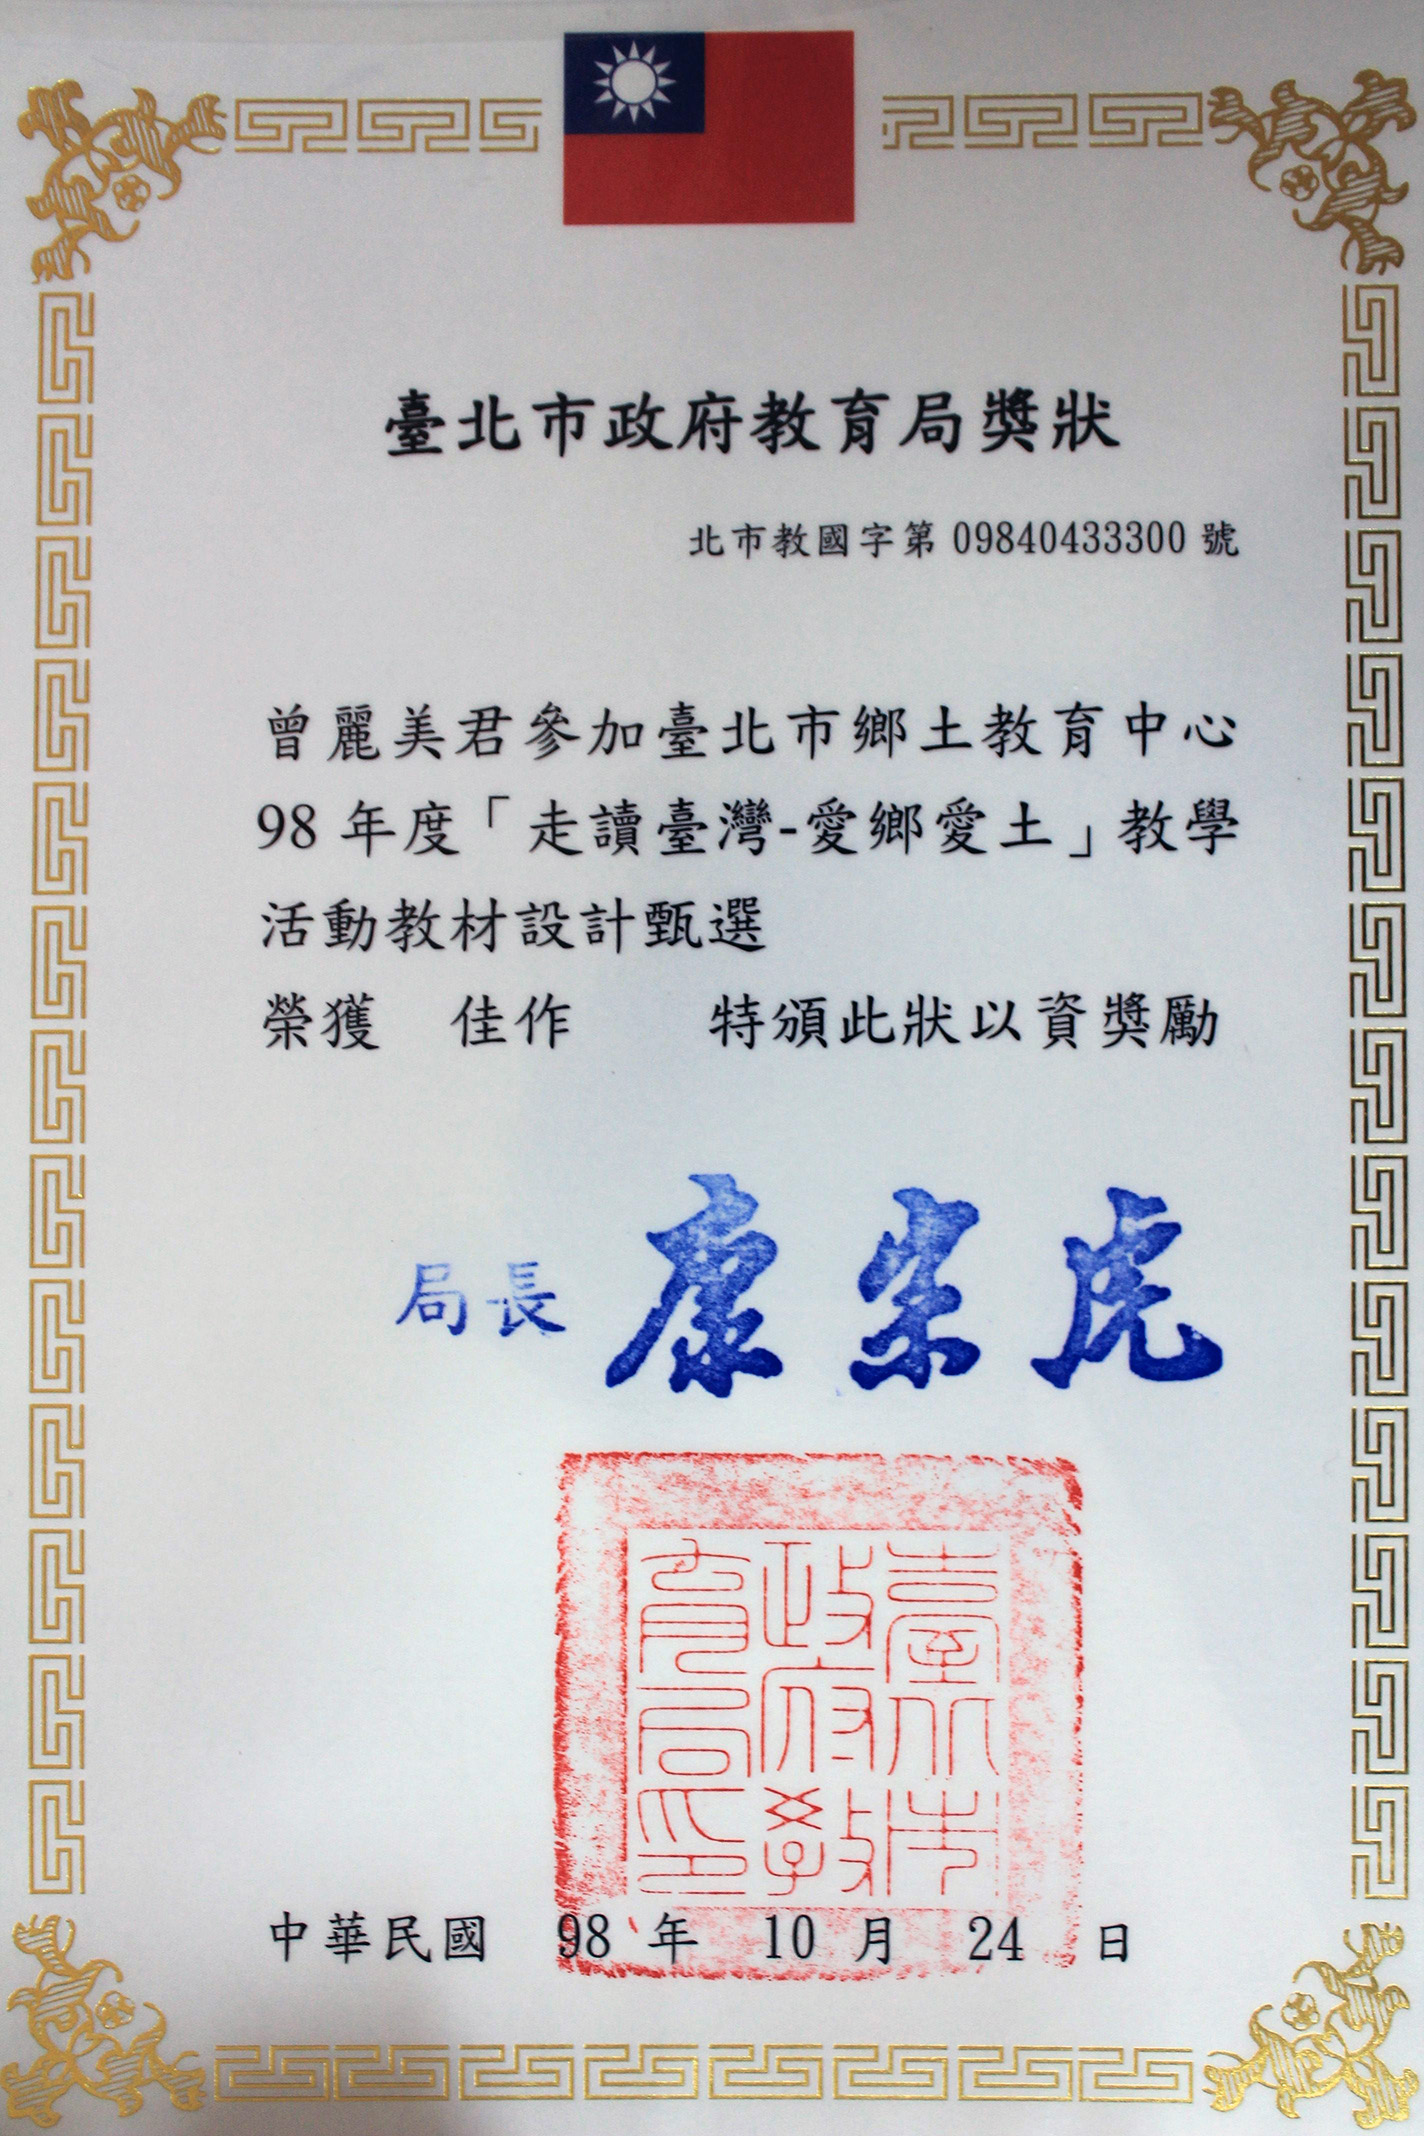 臺北市政府教育局獎狀
北市教國字第 09840433300 號
曾麗美君參加臺北市鄉土教育中心
98 年度「走讀臺灣-愛鄉愛土」教學
活動教材設計甄選
榮獲 佳作 特頒此狀以資獎勵
局長 康宗虎
臺北市政府教育局印
中華民國 98 年 10 月 24 日